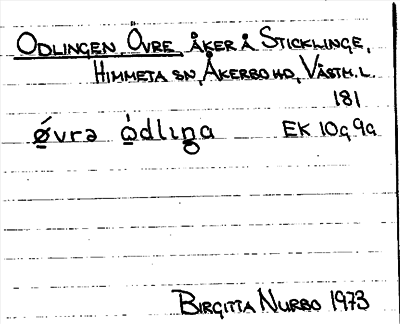 ODLINGEN, ÖVRE, ÅKER Å STICKLINGE,
HIMMETA SN, ÅKERBO HD, VÄSTM. L.
181
ǿ̠vrə ò̠dlıŋa EK 10g 9g
BIRGITTA NURBO 1973